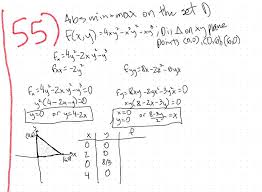 55) Abs min + max on the set D
F(x,y) = 4xy² - x²y² - xy³ ; D is Δ on xy plane
points (0,0), (0,6), (6,0)
Fx = 4y² - 2xy² - y³
Fxx = -2y²
Fyy = 8x - 2x² - 6xy
Fx = 4y² - 2xy² - y³ = 0
y²(4 - 2x - y) = 0
y = 0 or y = 4 - 2x
Fy = 8xy - 2yx² - 3xy² = 0
xy(8 - 2x - 3y) = 0
x = 0
y = 0
x y f
0 0
2 0
0 8/3
4 0